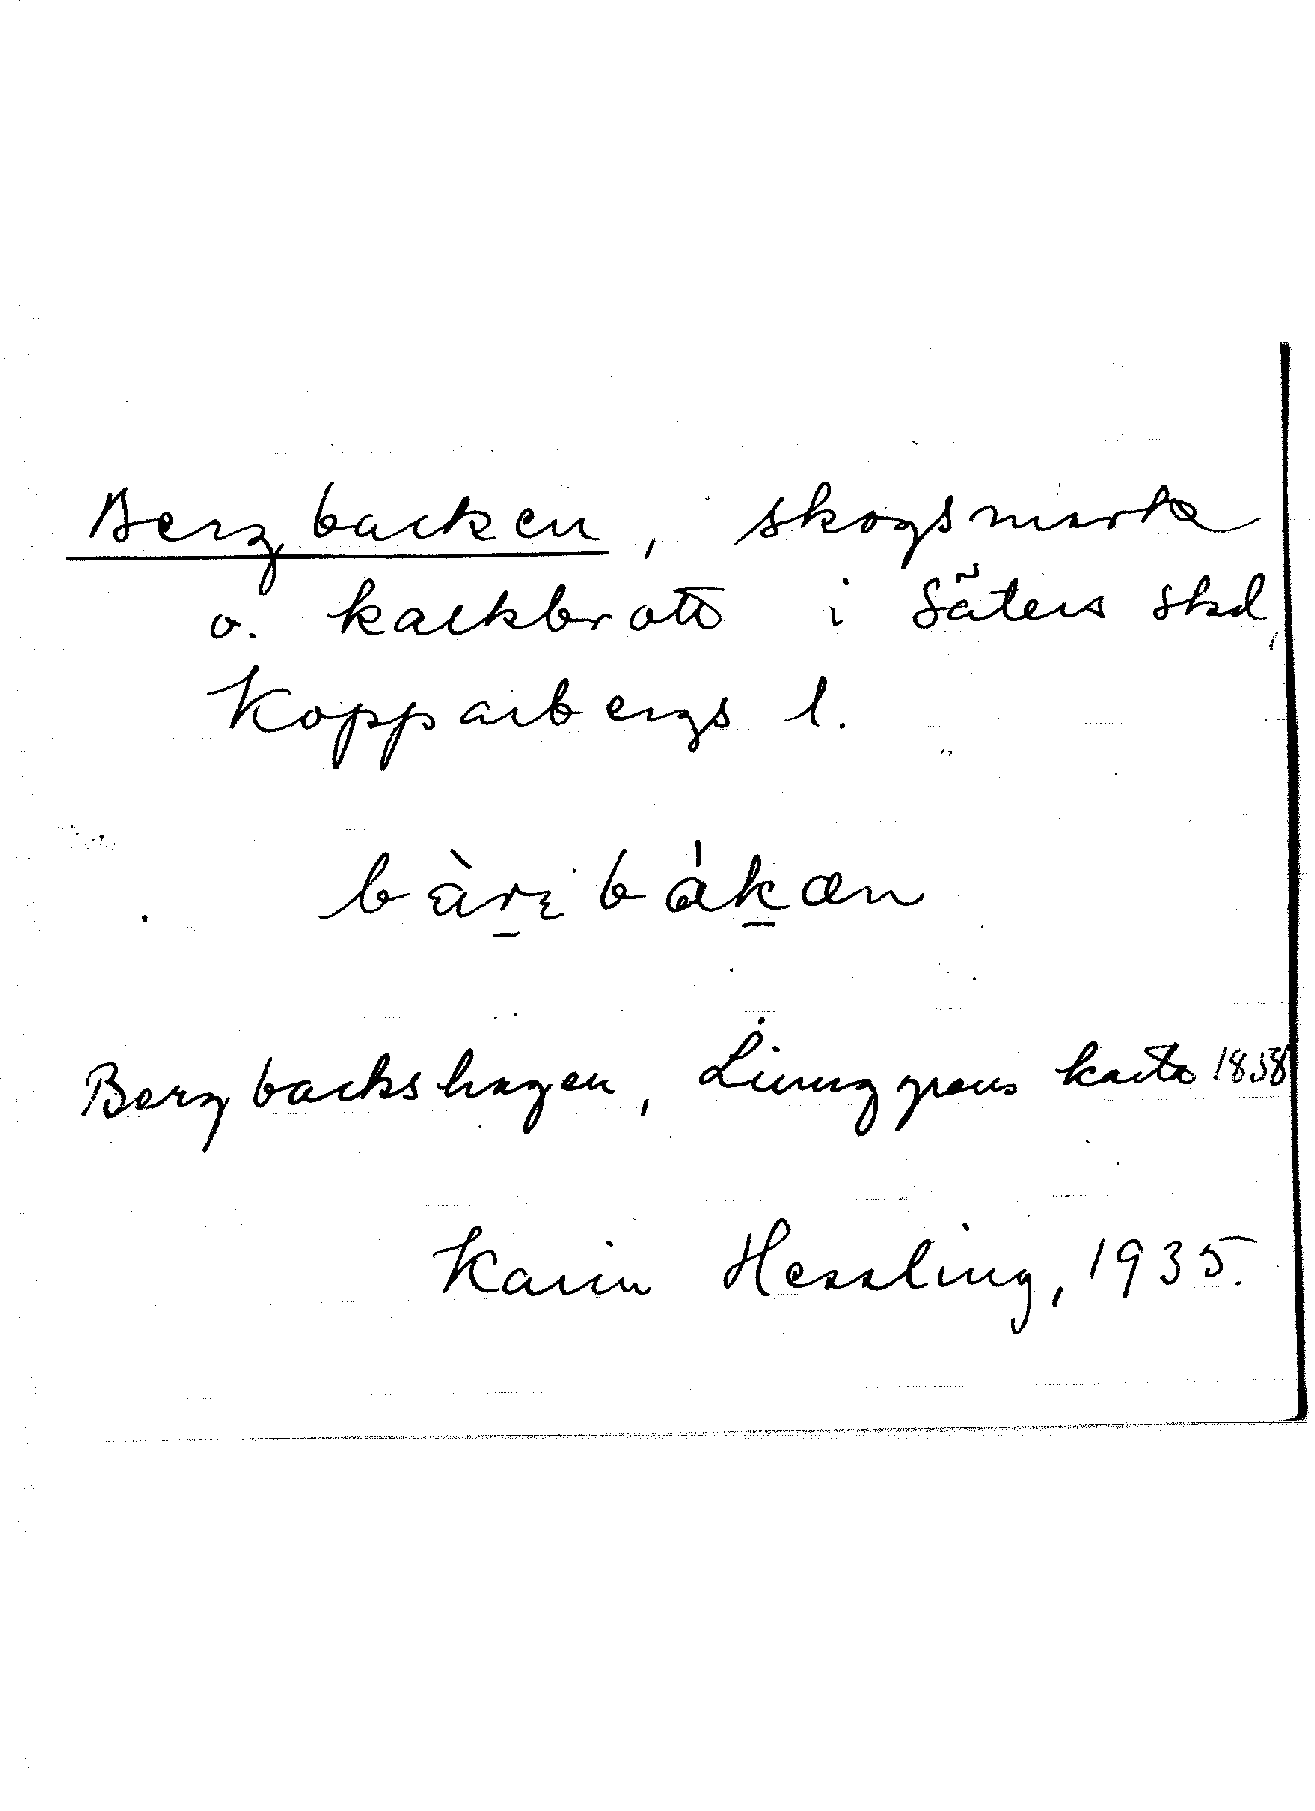 Bergbacken, skogsmark
o. kalkbrott i Säters skd,
Kopparbergs l.
bàrɛbákæn
Bergbackshagen, Ljunggrens karta 1858
Karin Hessling, 1935.